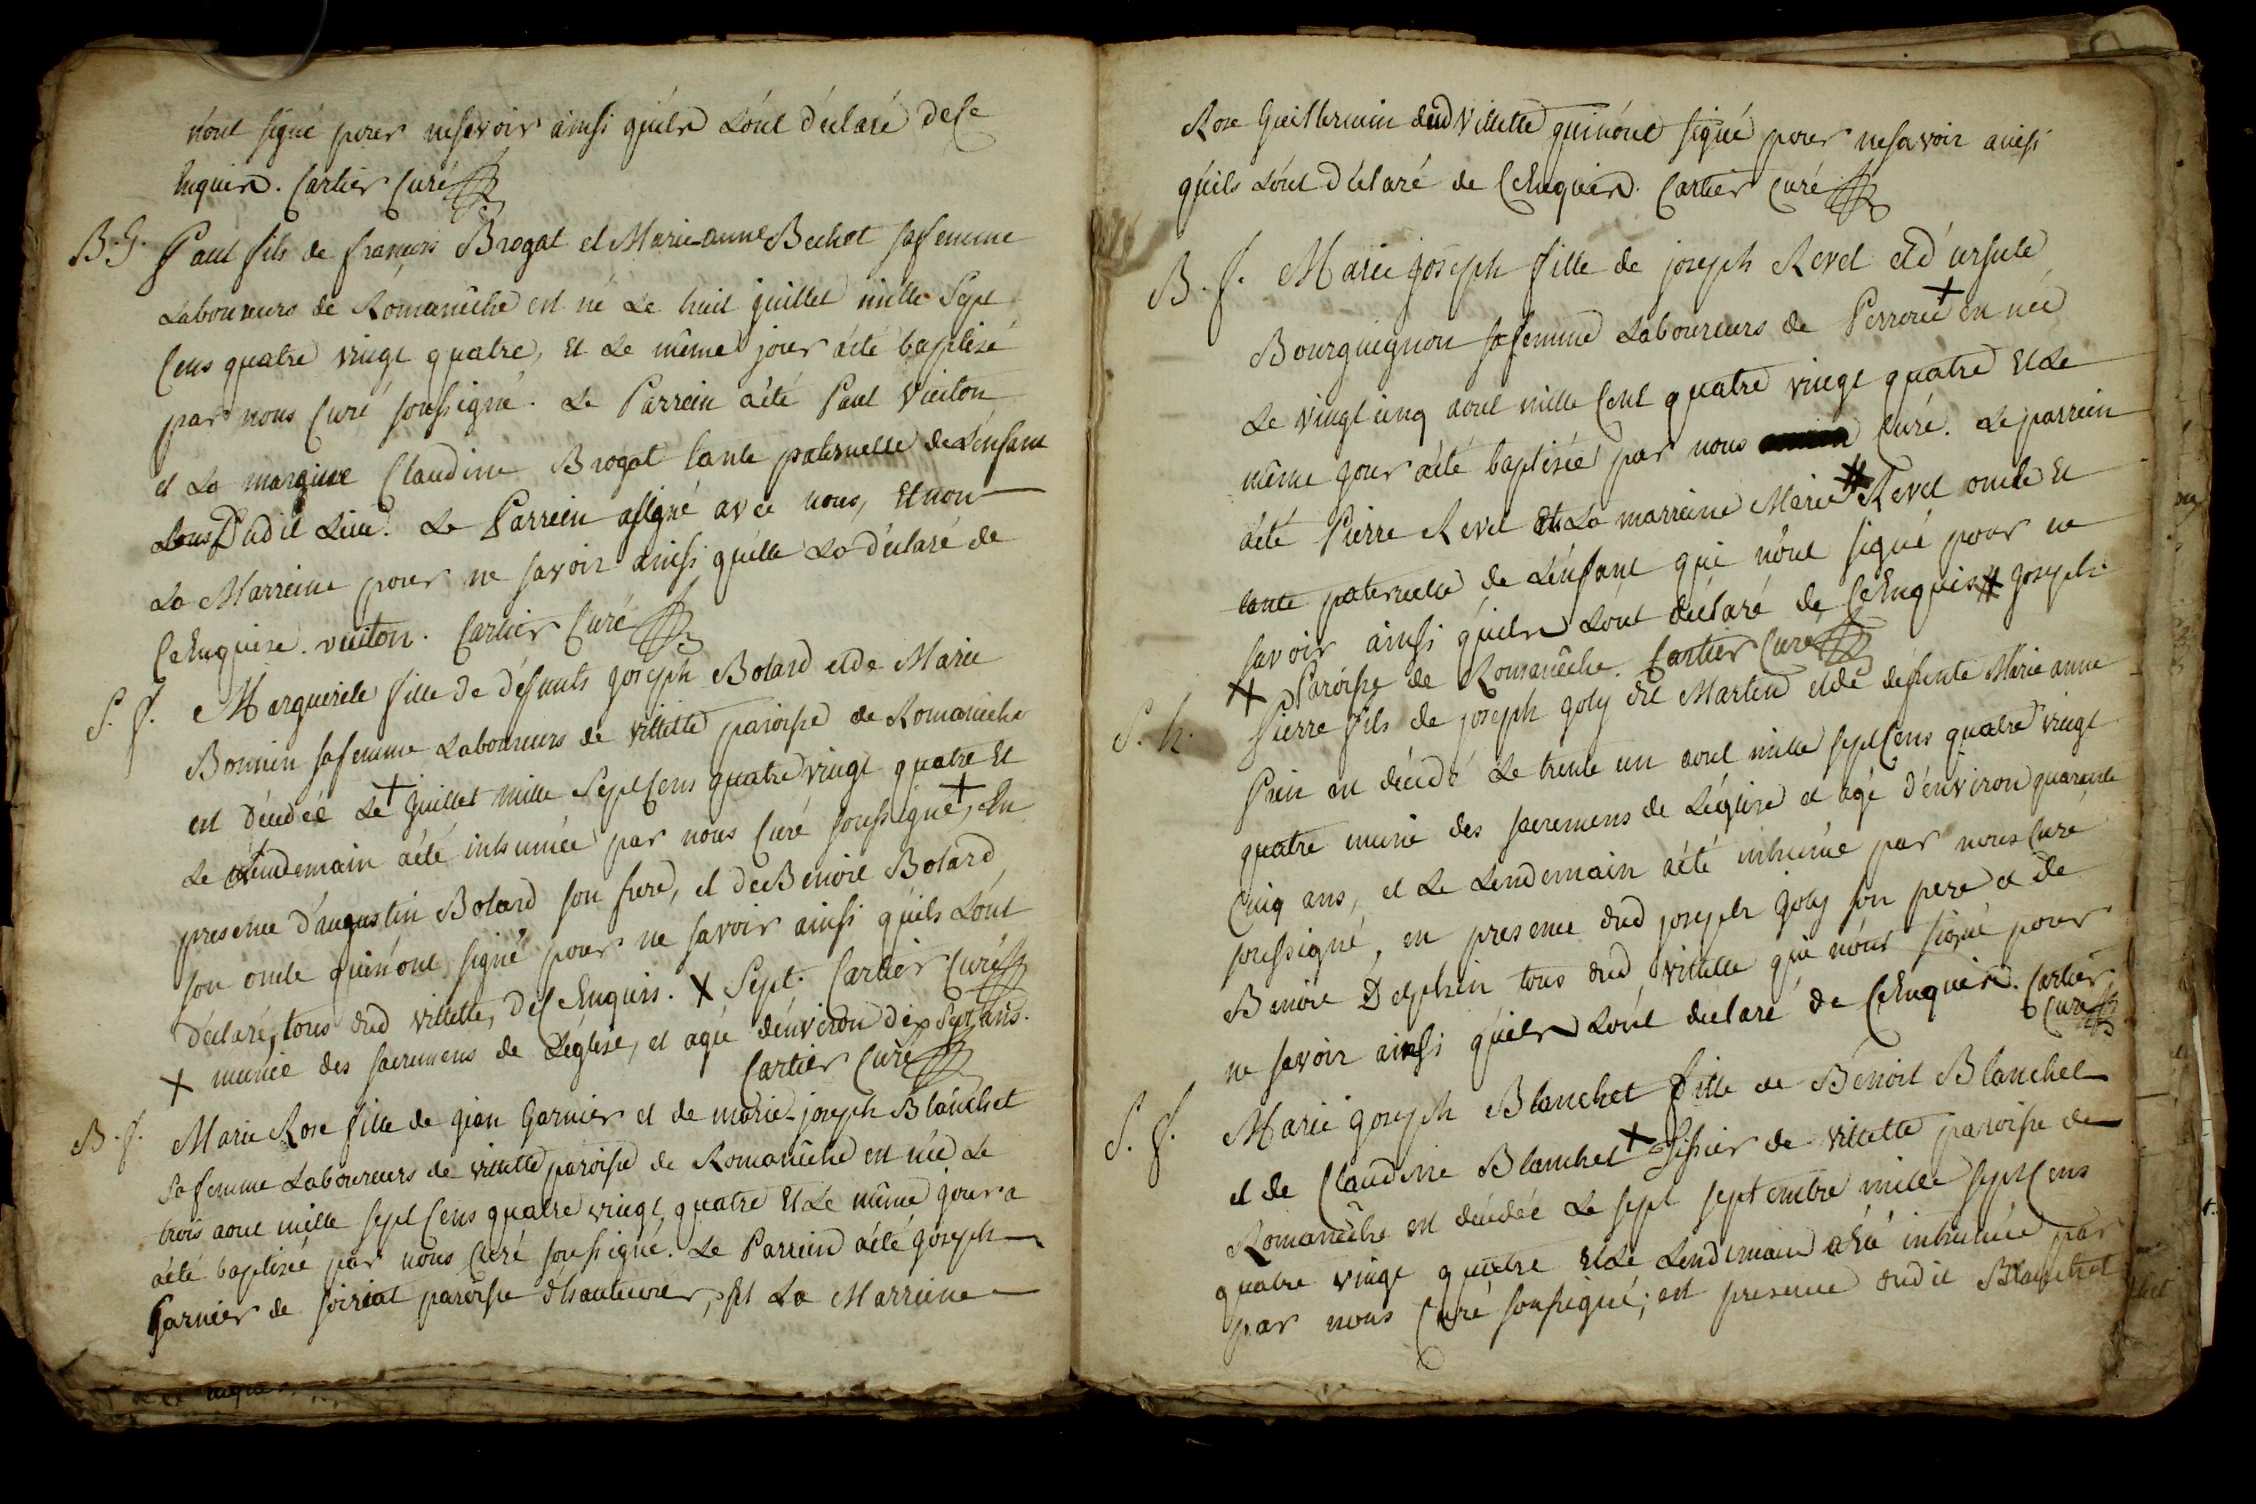 n'ont signé pour nesavoir ainsi qu'ils L'ont déclaré dece
Enquis. Cartier Curé
B. G. Paul fils de françois Brogat et Marie-anne Bechet sa femme
Laboureurs de Romanêche est né Le huit juillet mille Sept
Cens quatre vingt quatre, et Le même jour aété baptisé
par nous Curé soussigné. Le Parrein aété Paul Vuiton
et La marrine Claudine Brogat tante paternelle de L'enfant
tous Dudit Lieu. Le Parrein asigné avec nous, et non
La Marreine pour ne savoir ainsi qu'elle La déclaré de
Ce Enquise. vuiton. Cartier Curé
S. f. Marguerite fille de défunts joseph Botard et de Marie
Bonnin sa femme Laboureurs de villette paroisse de Romaneche
est décedée Le + juillet mille Sept Cens quatre vingt quatre et
Le Lendemain aété inhumée par nous Curé soussigné +, En
presence d'augustin Botard son frere, et de Benoit Botard
son oncle qui n'ont signé pour ne savoir ainsi qu'ils L'ont
déclaré, tous dud villette, de Ce Enquis. X Sept. Cartier Curé
X munie des sacremens de L'église, et agée d'environ dix Sept ans.
Cartier Curé
B. f. Marie Rose fille de jean Garnier et de marie-joseph Blanchet
Sa femme Laboureurs de villette paroisse de Romanêche est née Le
trois aout mille sept Cens quatre vingt quatre et Le même jour a
aété baptisée par nous Curé soussigné. Le Parrein aété joseph
Garnier de soiriat paroisse d'hautecour, et La Marreine
Rose Guillermin dud villette qui n'ont signé pour nesavoir ainsi
qu'ils L'ont déclaré de Ce Enquis. Cartier Curé
B. f. Marie joseph fille de joseph Revel et d'ursule
Bourguignon sa femme Laboureurs de + est née
Le vingt cinq aout mille Cent quatre vingt quatre et Le
même jour aété baptisée par nous Curé. Le parrein
aété Pierre Revel et La marreine Marie # Revel oncle et
tante paternelle de L'enfant qui n'ont signé pour ne
savoir ainsi qu'ils L'ont déclaré de Ce Enquis # joseph.
X Paroisse de Romanêche. Cartier Curé
S. h. Pierre fils de joseph joly dit Martin et de défunte Marie anne
est décedé Le trente un aout mille sept Cens quatre vingt
quatre muni des sacremens de L'église et agé d'environ quarante
Cinq ans, et Le Lendemain aété inhumé par nous Curé
soussigné, en presence dud joseph joly son pere et de
Benoit Delphin tous dud villette qui n'ont signé pour
ne savoir ainsi qu'ils L'ont déclaré de Ce Enquis. Cartier
Curé
S. f. Marie joseph Blanchet fille de Bénoit Blanchet
et de Claudine Blanchet + Tissier de villette paroisse de
Romanêche est décedée Le sept septembre mille sept Cens
quatre vingt quatre et Le Lendemain a été inhumée par
par nous Curé soussigné; en presence dudit Blanchet